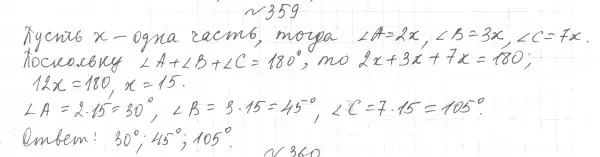 №359
Пусть x – одна часть, тогда ∠A=2x, ∠B=3x, ∠C=7x.
Поскольку ∠A+∠B+∠C=180°, то 2x+3x+7x=180;
12x=180, x=15.
∠A=2·15=30°, ∠B=3·15=45°, ∠C=7·15=105°.
Ответ: 30°; 45°; 105°.
№360